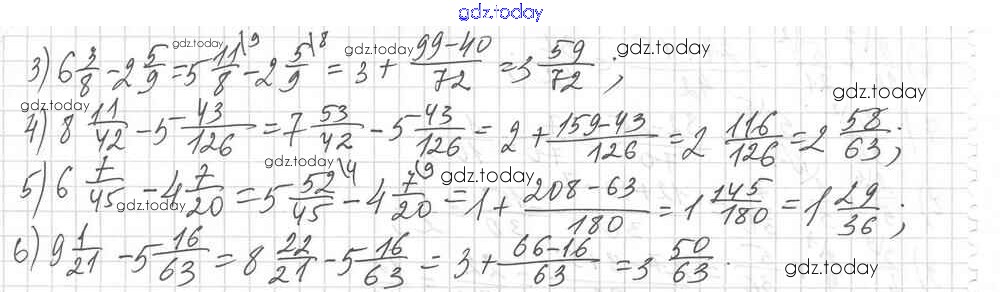 gdz.today
3) 6 3/8 - 2 5/9 = 5 11/8 \9 - 2 5/9 \8 = 3 + (99-40)/72 = 3 59/72 ;
gdz.today gdz.today gdz.today
gdz.today gdz.today
4) 8 11/42 - 5 43/126 = 7 53/42 - 5 43/126 = 2 + (159-43)/126 = 2 116/126 = 2 58/63 ;
gdz.today gdz.today
5) 6 7/45 - 4 7/20 = 5 52/45 \4 - 4 7/20 \9 = 1 + (208-63)/180 = 1 145/180 = 1 29/36 ;
gdz.today
6) 9 1/21 - 5 16/63 = 8 22/21 - 5 16/63 = 3 + (66-16)/63 = 3 50/63 .
gdz.today